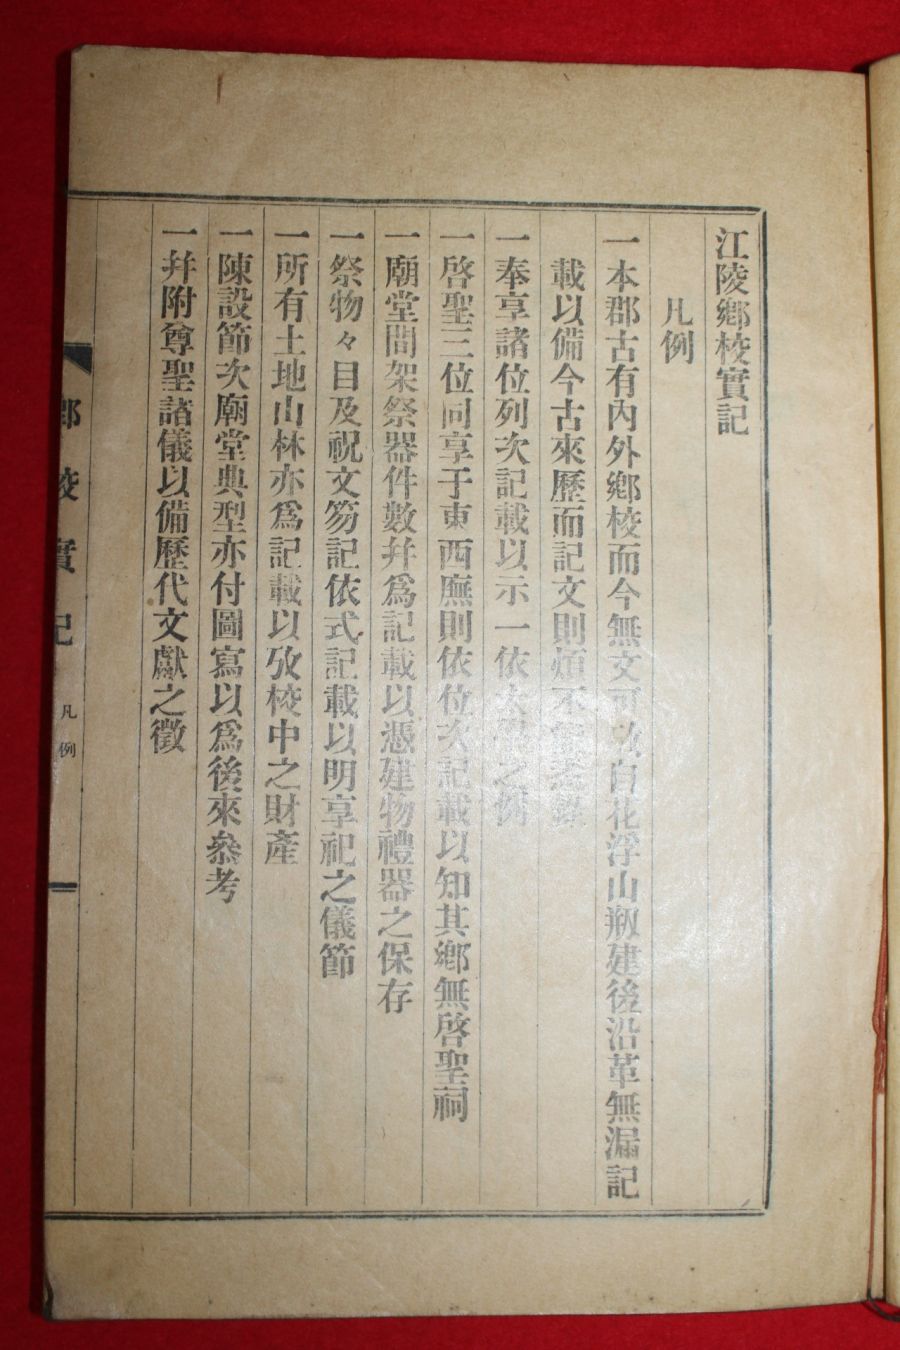 江陵鄕校實記
凡例
一本郡古有內外鄕校而今無文可攷自花浮山刱建後沿革無漏記
載以備今古來歷而記文則煩不
一奉享諸位列次記載以示一依太學之例
一啓聖三位同享于東西廡則依位次記載以知其鄕無啓聖祠
一廟堂間架祭器件數幷爲記載以憑建物禮器之保存
一祭物々目及祝文笏記依式記載以明享祀之儀節
一所有土地山林亦爲記載以攷校中之財產
一陳設節次廟堂典型亦付圖寫以爲後來叅考
一幷附尊聖諸儀以備歷代文獻之徵
鄕校實記
凡例